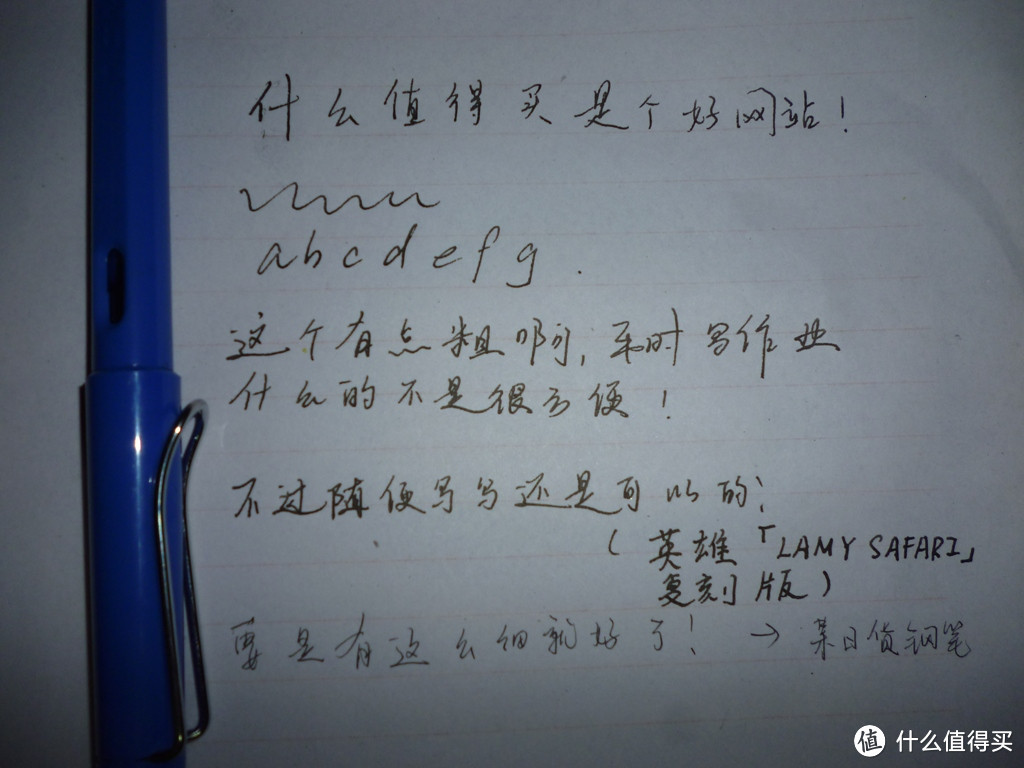 什么值得买是个好网站！
abcdefg.
这个有点粗啊，平时写作业
什么的不是很方便！
不过随便写写还是可以的！
（英雄「LAMY SAFARI」
复刻版）
要是有这么细就好了！ → 某日货钢笔
值 什么值得买